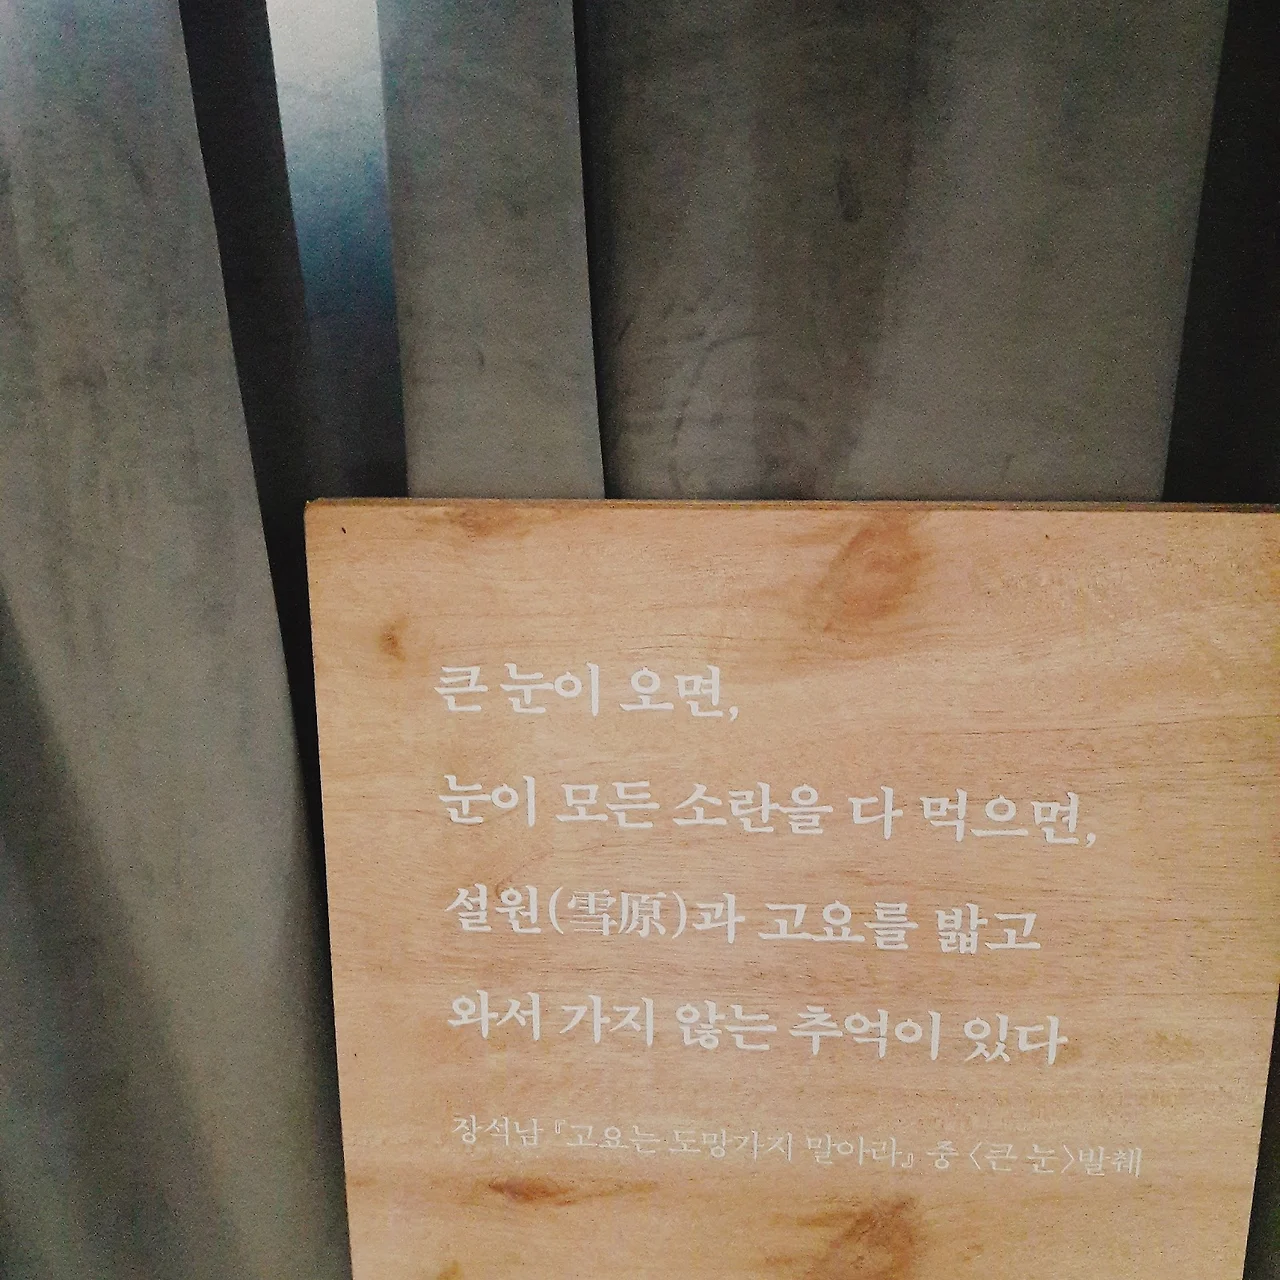 큰 눈이 오면,
눈이 모든 소란을 다 먹으면,
설원(雪原)과 고요를 밟고
와서 가지 않는 추억이 있다
장석남 『고요는 도망가지 말아라』 중 〈큰 눈〉발췌